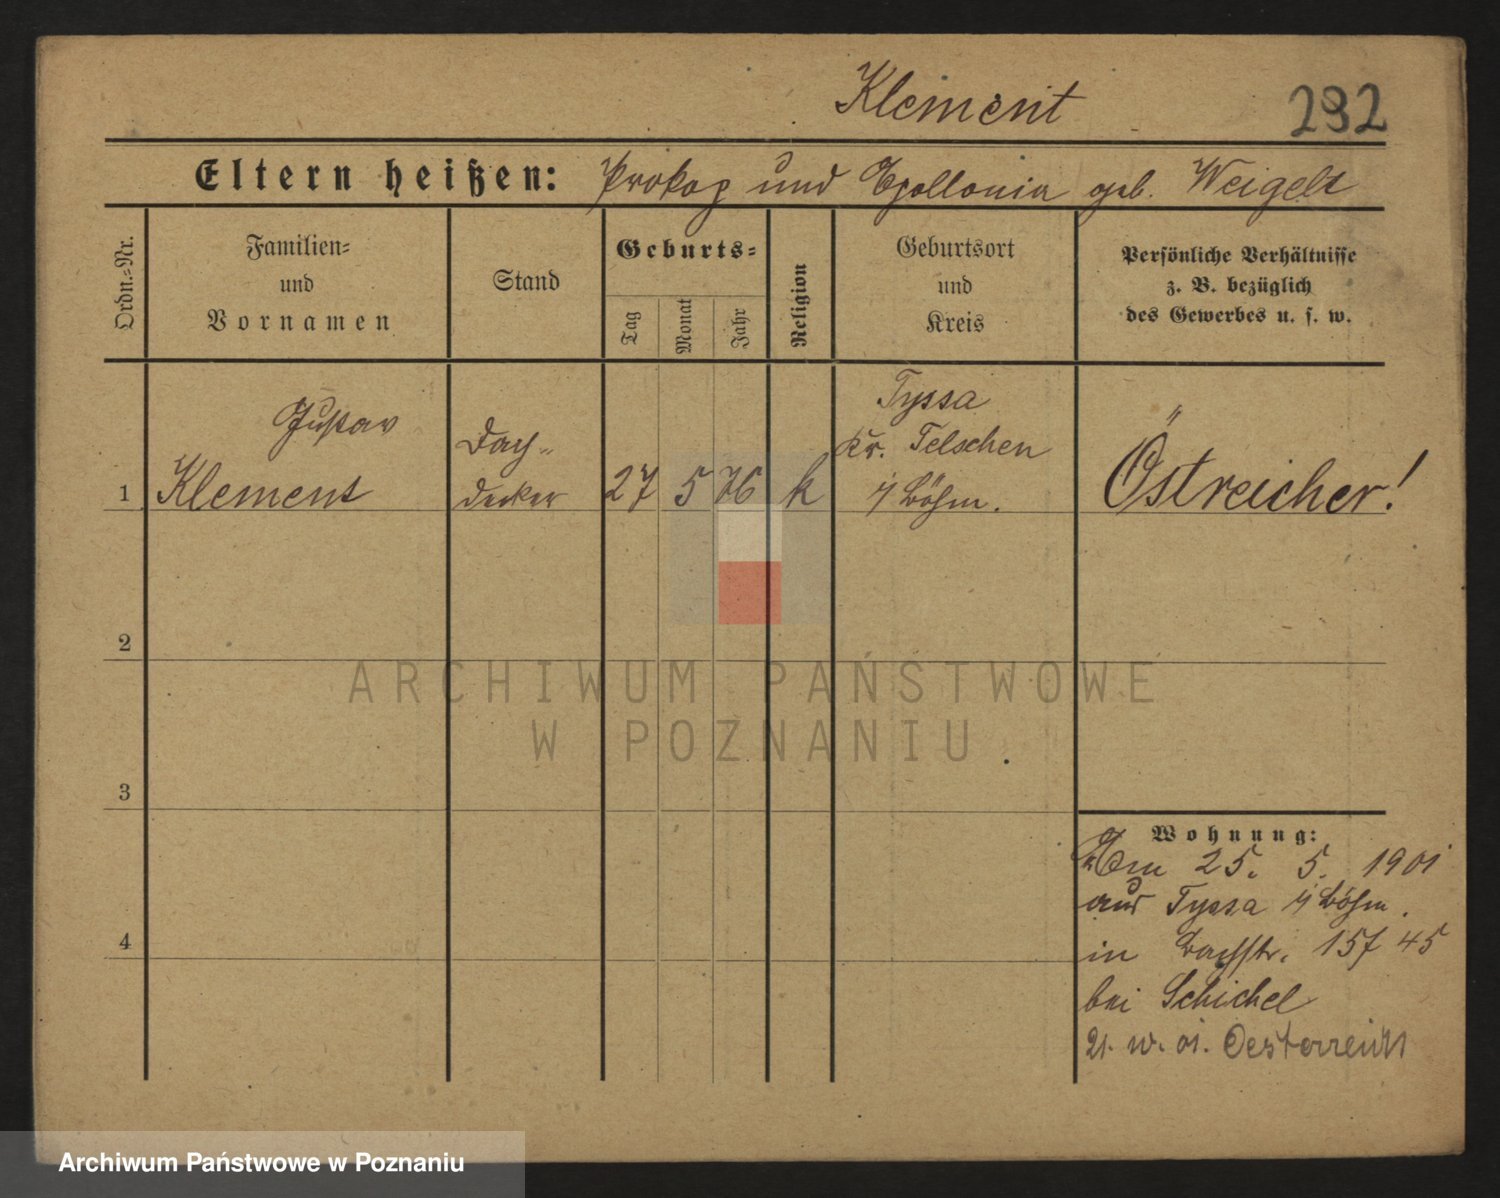 Klement 292
Eltern heißen: Prokop und Apollonia geb. Weigelt
Ordn.-Nr.
Familien-
und
Vornamen
Stand
Geburts-
Tag
Monat
Jahr
Religion
Geburtsort
und
Kreis
Persönliche Verhältnisse
z. B. bezüglich
des Gewerbes u. s. w.
Gustav
1 Klement
Dach-
decker
27 5 76 k
Tyssa
Kr. Telschen
i/ Böhm.
Östreicher!
2
3
4
Wohnung:
Am 25. 5. 1901
aus Tyssa i/ Böhm.
in Bachstr. 45
bei Schichel
21. 01. Oesterreich
ARCHIWUM PAŃSTWOWE
W POZNANIU
Archiwum Państwowe w Poznaniu